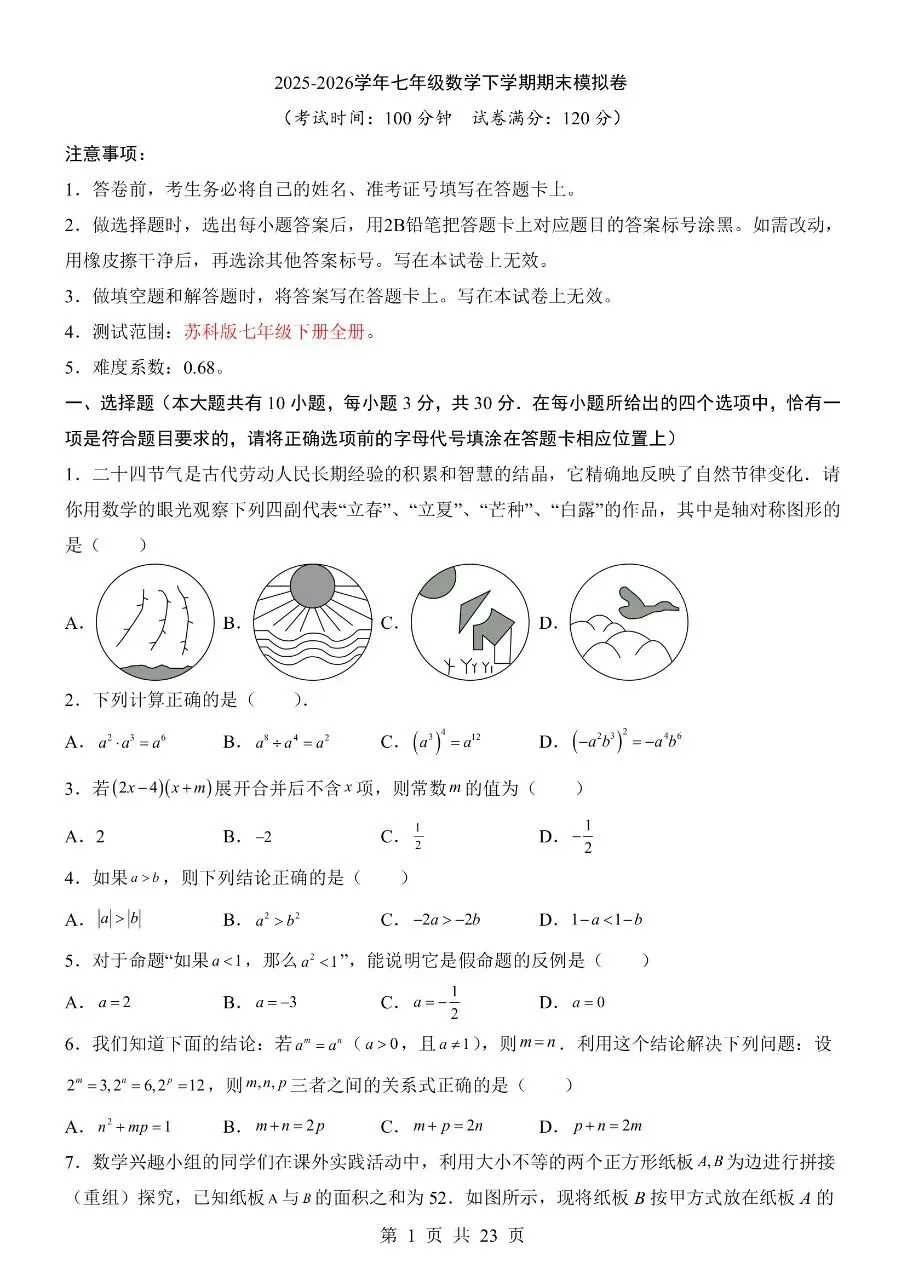 2025-2026学年七年级数学下学期期末模拟卷
（考试时间：100 分钟　试卷满分：120 分）
注意事项：
1．答卷前，考生务必将自己的姓名、准考证号填写在答题卡上。
2．做选择题时，选出每小题答案后，用2B铅笔把答题卡上对应题目的答案标号涂黑。如需改动，
用橡皮擦干净后，再选涂其他答案标号。写在本试卷上无效。
3．做填空题和解答题时，将答案写在答题卡上。写在本试卷上无效。
4．测试范围：苏科版七年级下册全册。
5．难度系数：0.68。
一、选择题（本大题共有 10 小题，每小题 3 分，共 30 分．在每小题所给出的四个选项中，恰有一
项是符合题目要求的，请将正确选项前的字母代号填涂在答题卡相应位置上）
1．二十四节气是古代劳动人民长期经验的积累和智慧的结晶，它精确地反映了自然节律变化．请
你用数学的眼光观察下列四副代表“立春”、“立夏”、“芒种”、“白露”的作品，其中是轴对称图形的
是（　　）
A． B． C． D．
2．下列计算正确的是（　　）．
A．a²·a³=a⁶ B．a⁸÷a⁴=a² C．(a³)⁴=a¹² D．(−a²b³)²=−a⁴b⁶
3．若(2x−4)(x+m)展开合并后不含 x 项，则常数 m 的值为（　　）
A．2 B．−2 C．1/2 D．−1/2
4．如果 a>b，则下列结论正确的是（　　）
A．|a|>|b| B．a²>b² C．−2a>−2b D．1−a<1−b
5．对于命题“如果 a<1，那么 a²<1”，能说明它是假命题的反例是（　　）
A．a=2 B．a=−3 C．a=−1/2 D．a=0
6．我们知道下面的结论：若 aᵐ=aⁿ（a>0，且 a≠1），则 m=n．利用这个结论解决下列问题：设
2ᵐ=3,2ⁿ=6,2ᵖ=12，则 m,n,p 三者之间的关系式正确的是（　　）
A．n²+mp=1 B．m+n=2p C．m+p=2n D．p+n=2m
7．数学兴趣小组的同学们在课外实践活动中，利用大小不等的两个正方形纸板 A,B 为边进行拼接
（重组）探究，已知纸板 A 与 B 的面积之和为 52．如图所示，现将纸板 B 按甲方式放在纸板 A 的
第 1 页 共 23 页